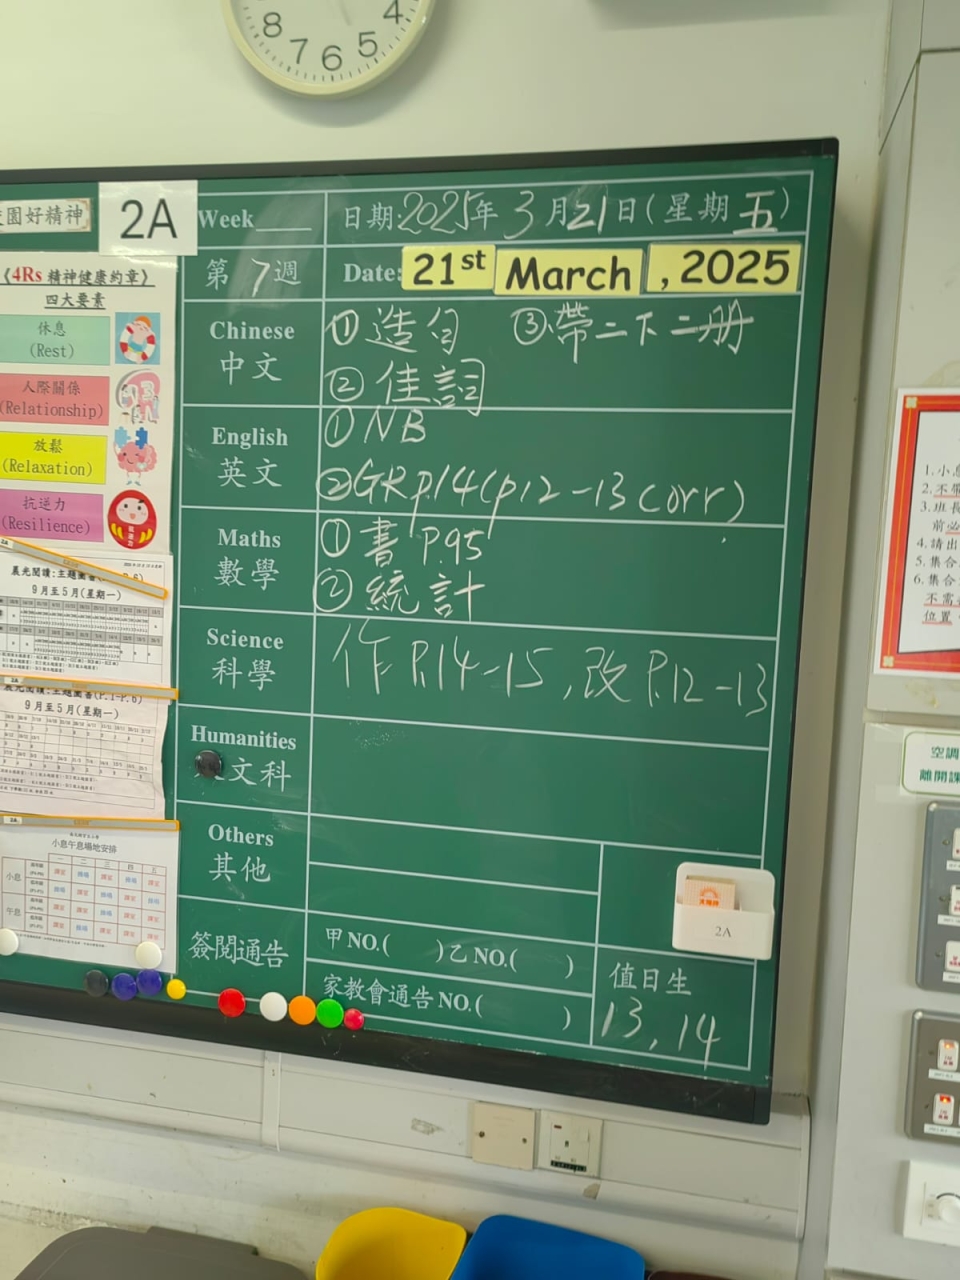 8 7 6 5 4
園好精神
2A
Week
日期:2025年 3月21日(星期五)
第7週
Date: 21st March , 2025
《4Rs 精神健康約章》
四大要素
休息
(Rest)
人際關係
(Relationship)
放鬆
(Relaxation)
抗逆力
(Resilience)
Chinese
中文
①造句 ③帶二下二冊
②佳詞
English
英文
①NB
②GRP.14(p12-13 corr)
Maths
數學
①書 P.95
②統計
Science
科學
作P.14-15,改P.12-13
Humanities
文科
Others
其他
簽閱通告
甲NO.( )乙NO.( )
家教會通告NO.( )
值日生
13, 14
2A
晨光閱讀:主題圖書
9月至5月(星期一)
晨光閱讀:主題圖書(P.1-P.6)
9月至5月(星期一)
小息午息場地安排
小息
午息
1.小息
2.不帶
3.班長
前必
4.請出
5.集合
6.集合
不需
位置
空調
離開課